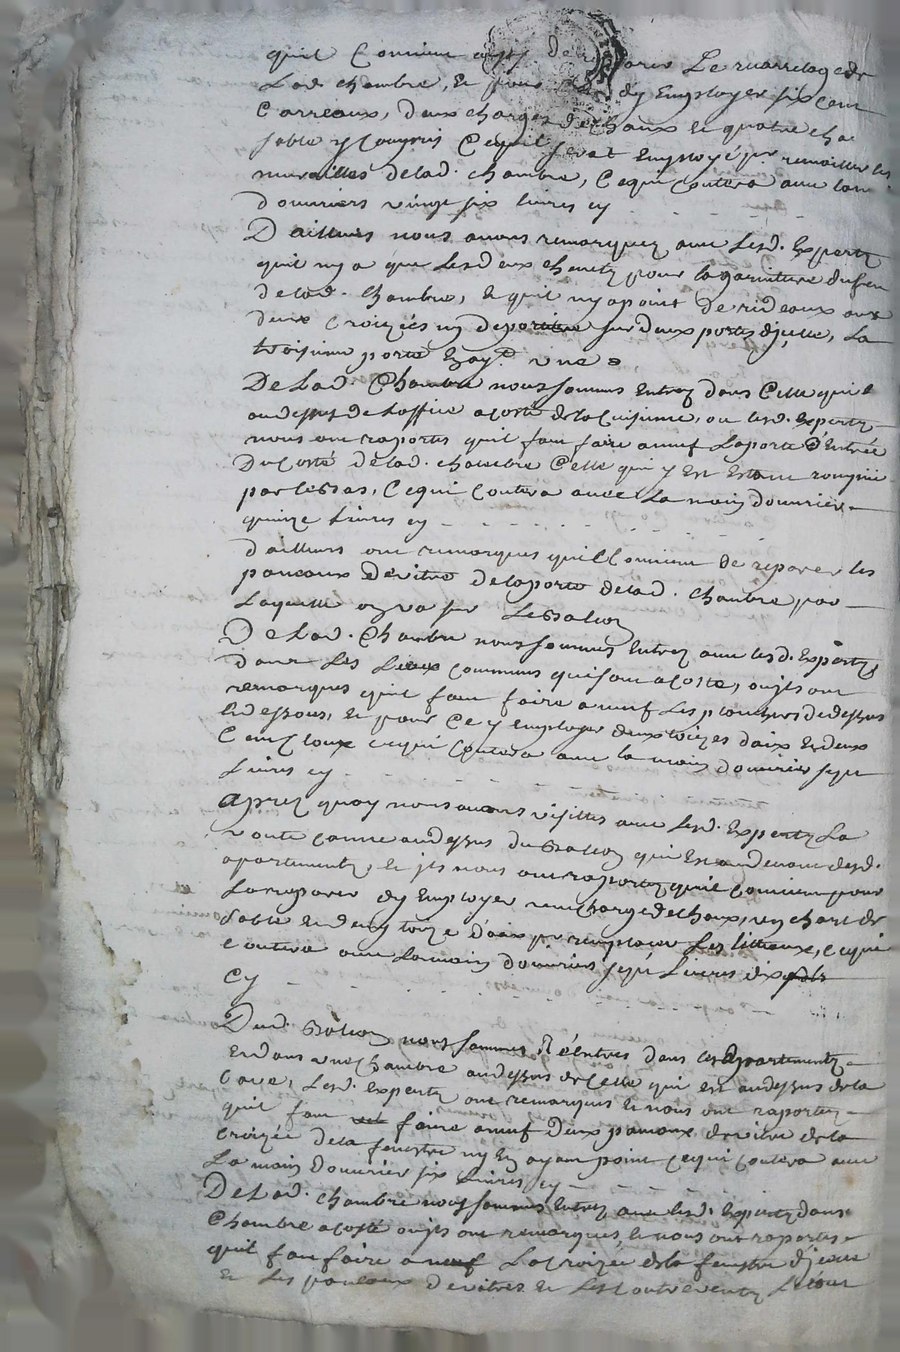 quil Convient aussy de reparer Le quarrelage de
Lad. chambre, et pour ce dy Employer six cent
Carreaux, deux charges de chaux et quatre cha
sable y Compris Cequil serat Employé pr remailler les
murailles delad. chambre, Cequi Coutera avec la main
douvriers vingt six livres cy
D'ailleurs nous avons remarquez avec Lesd. Expertz
quil ny a que Lesdeux chenetz pour la garniture dufeu
delad. Chambre, et quil nya point de rideaux aux
deux croizées ny deportiere sur deux portes dicelle, La
troisieme porte En ayt. une
De Lad. Chambre nous sommes Entrez dans Celle qui est
audessus de Loffice acosté de la Cuisinne, ou lesd. Expertz
nous ont raportes quil faut faire aneuf Laporte d'Entrée
Du Costé delad. chambre Celle qui y Est Estant rompüe
par le bas, Cequi Coutera avec La main douvrier
quinze Livres cy
dailleurs ont remarques quil Convient de reparer les
paneaux de vitre de laporte delad. Chambre par
Laquelle on va sur Le Balcon
De Lad. Chambre nous sommes Entrez avec lesd. Expertz
dans Les Lieux communs qui sont acosté, ou ils ont
remarques quil faut faire aneuf Les planchers dedessus
et dessous, et pour Ce y employer deux toizes daix et deux
Cent Cloux cequi Coutera avec la main douvrier sept
Livres cy
Aprez quoy nous avons visittes avec Lesd. Expertz La
voute audessus du Balcon qui Est audevant desd.
apartementz, et ils nous ont raportez quil Convient pour
La reparer dy Employer une charge de chaux, un chart de
sable et deux toize d'aix pr remplacer Les litteaux, Cequi
Coutera avec Lamain douvriers sept Livres dix sols
Cy
Dud. Balcon nous sommes Réentres dans les Apartementz
Et dans une chambre audessus de Celle qui est audessus de la
Cave, Lesd. Expertz ont remarques et nous ont raportez
quil faut faire aneuf Deux panaux de vitre de la
Croizée de la fenestre ny En ayant point Cequi Coutera avec
La main Douvrier six Livres cy
De Lad. Chambre nous sommes Entrez avec lesd. Expertz dans
Chambre acosté ou ils ont remarques, et nous ont raportes
quil faut faire aneuf La Croizée de la fenestre dicelle
Et Les paneaux de vitres et Les Contreventz